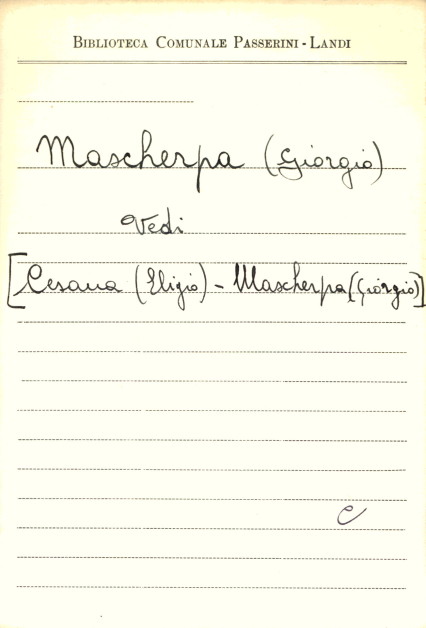 BIBLIOTECA COMUNALE PASSERINI - LANDI
Mascherpa (Giorgio)
Vedi
[Cesana (Eligio) - Mascherpa (Giorgio)]
C